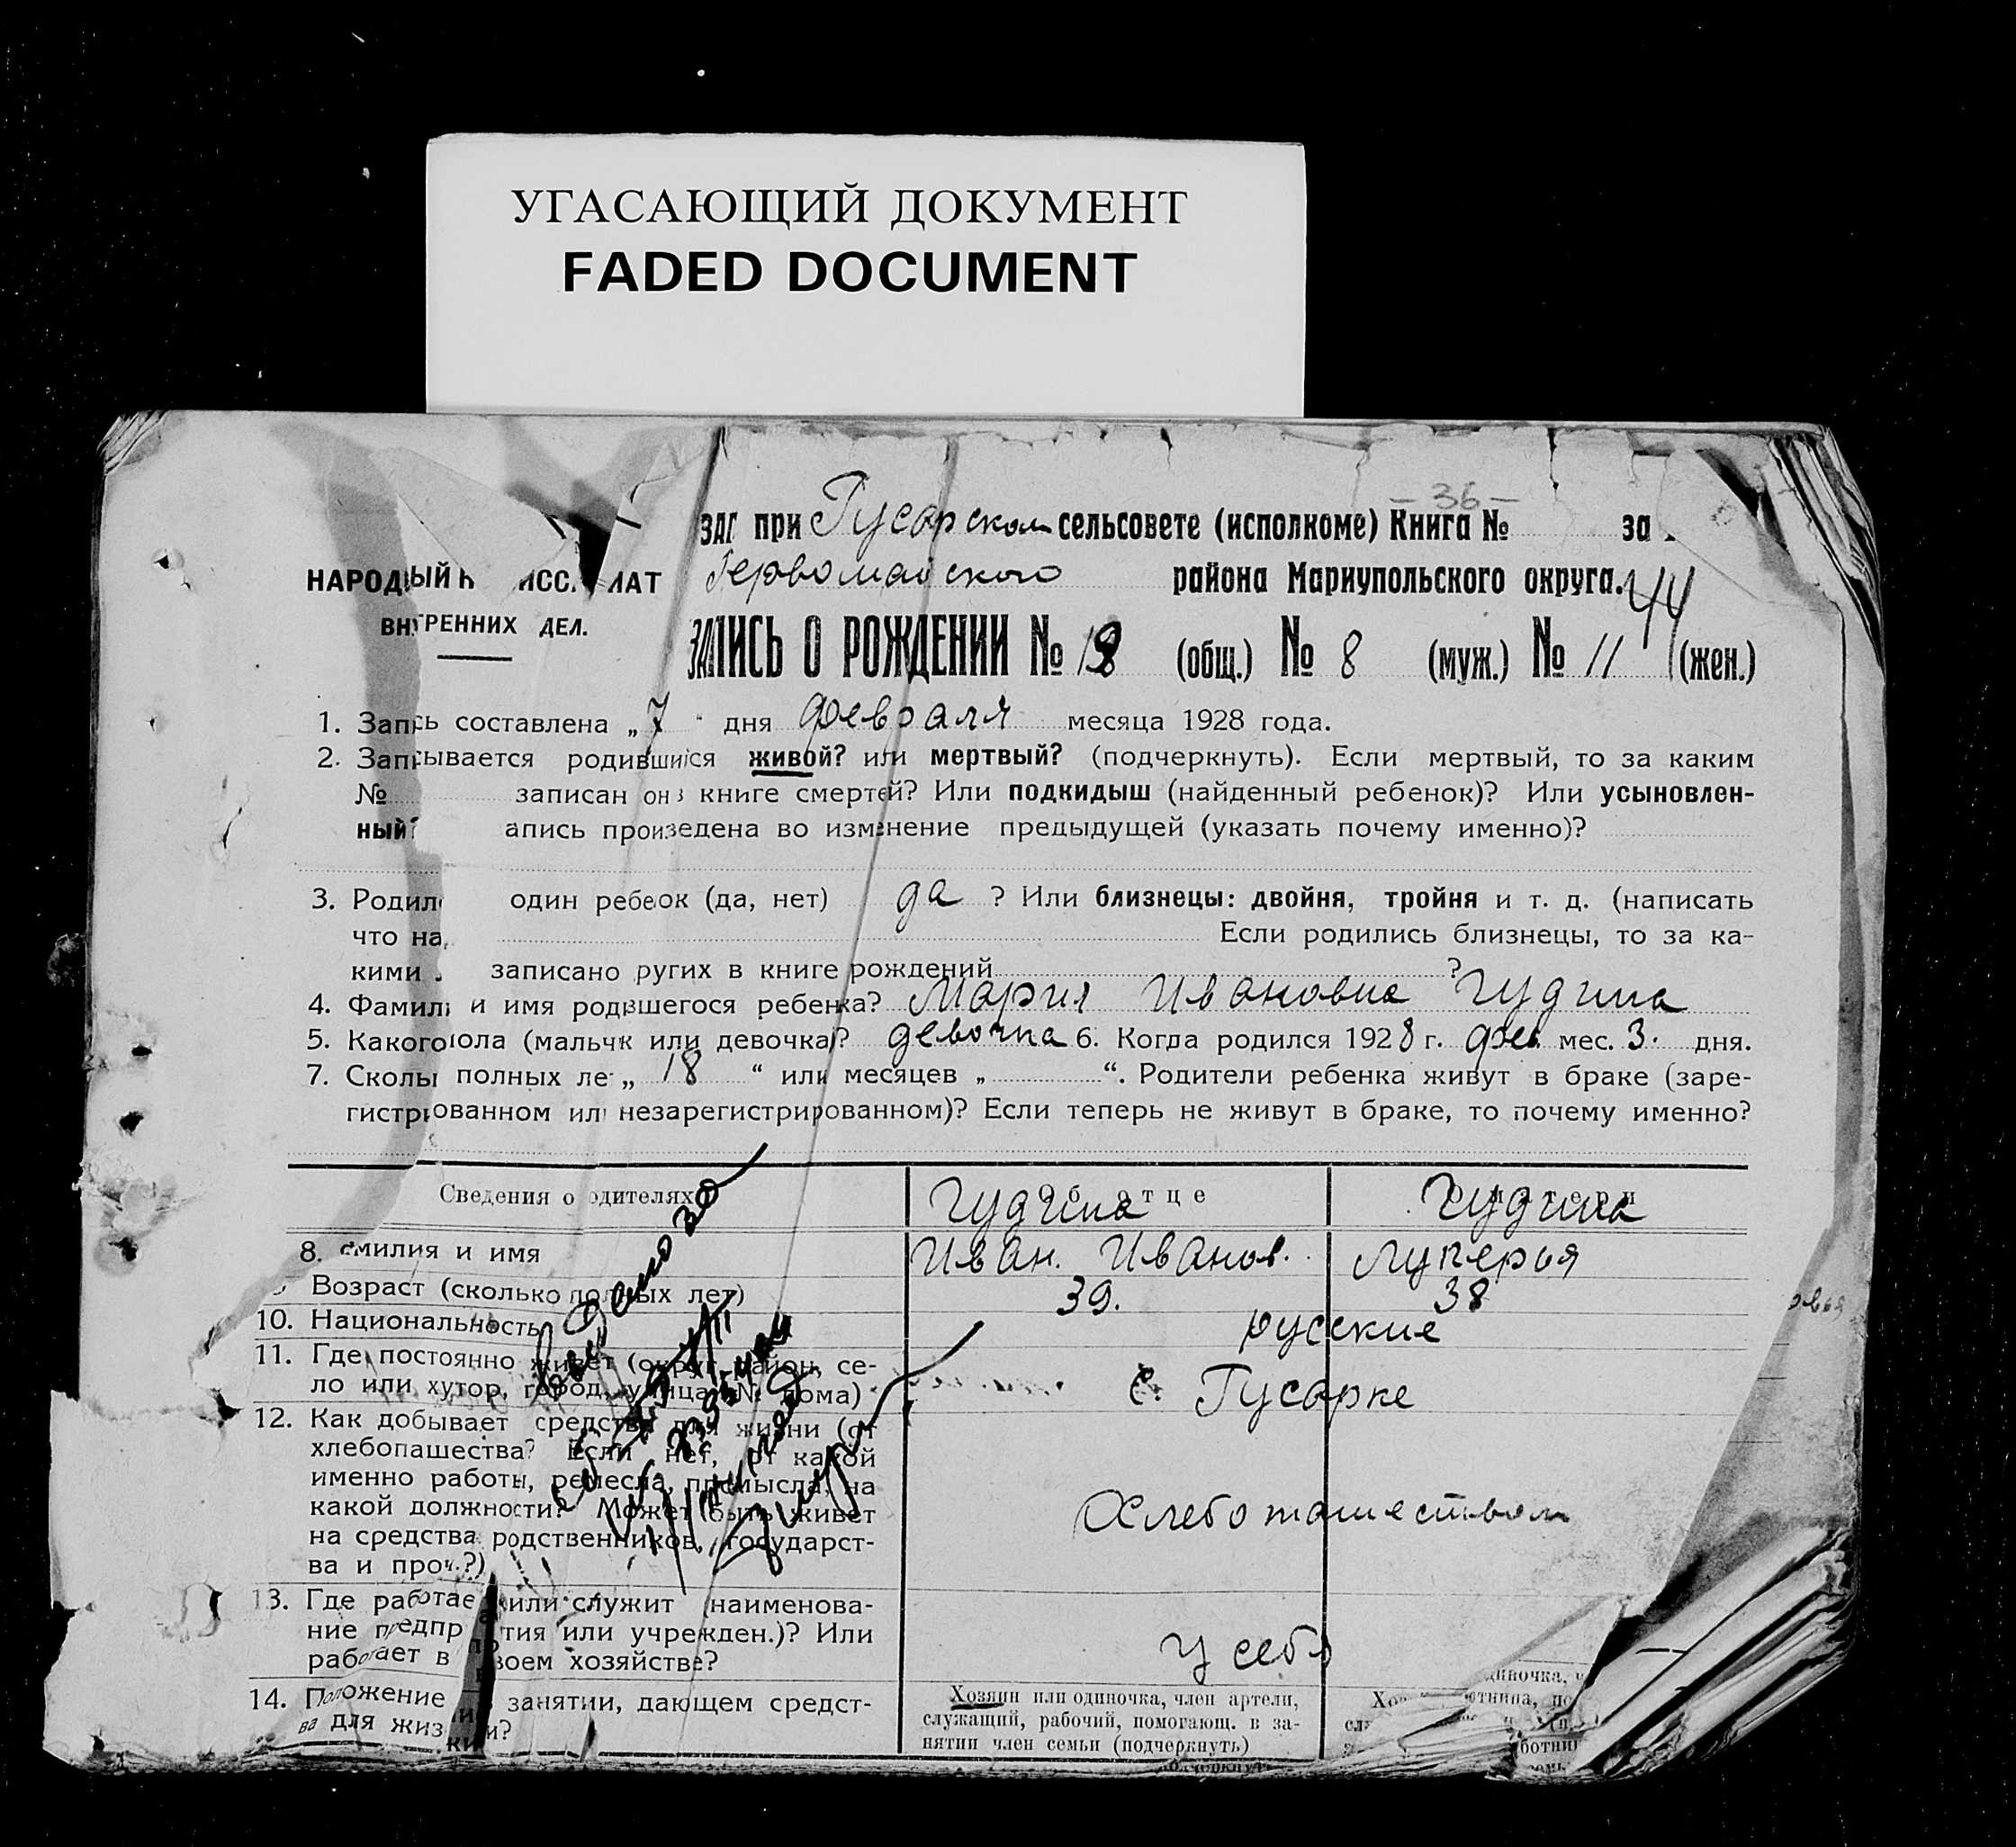 УГАСАЮЩИЙ ДОКУМЕНТ
FADED DOCUMENT
– 36 –
ЗАГ при Гусарском сельсовете (исполкоме) Книга № за
НАРОДНЫЙ К ИССАРИАТ Первомайского района Мариупольского округа. 44
ВНУТРЕННИХ ДЕЛ.
ЗАПИСЬ О РОЖДЕНИИ № (общ.) № 8 (муж.) № 11 (жен.)
1. Запись составлена „7" дня февраля месяца 1928 года.
2. Записывается родившийся живой? или мертвый? (подчеркнуть). Если мертвый, то за каким
№ записан он книге смертей? Или подкидыш (найденный ребенок)? Или усыновлен-
ный? апись произведена во изменение предыдущей (указать почему именно)?
3. Родил один ребенок (да, нет) да ? Или близнецы: двойня, тройня и т. д. (написать
что на Если родились близнецы, то за ка-
кими записано ругих в книге рождений ?
4. Фамилия и имя родившегося ребенка? Мария Ивановна Гудина
5. Какого пола (мальчик или девочка)? девочка 6. Когда родился 1928 г. фев. мес. 3. дня.
7. Сколько полных лет „ 18 “ или месяцев „ “. Родители ребенка живут в браке (заре-
гистрированном или незарегистрированном)? Если теперь не живут в браке, то почему именно?
Сведения о родителях Об отце О матери
Гудина Гудина
8. Фамилия и имя Иван. Иванов. Лукерья
9 Возраст (сколько полных лет) 39. 38
10. Национальность русские
11. Где постоянно живет (округ, район, се-
ло или хутор, город, улица, № дома) с. Гусарке
12. Как добывает средства для жизни (от
хлебопашества? Если нет, от какой
именно работы, ремесла, промысла, на
какой должности? Может быть живет
на средства родственников, государст-
ва и проч.?) Хлебопашеством
13. Где работает или служит (наименова-
ние предприятия или учрежден.)? Или
работает в своем хозяйстве? У себя
14. Положение в занятии, дающем средст-
ва для жизни?
Хозяин или одиночка, член артели,
служащий, рабочий, помогающ. в за-
нятии член семьи (подчеркнуть)